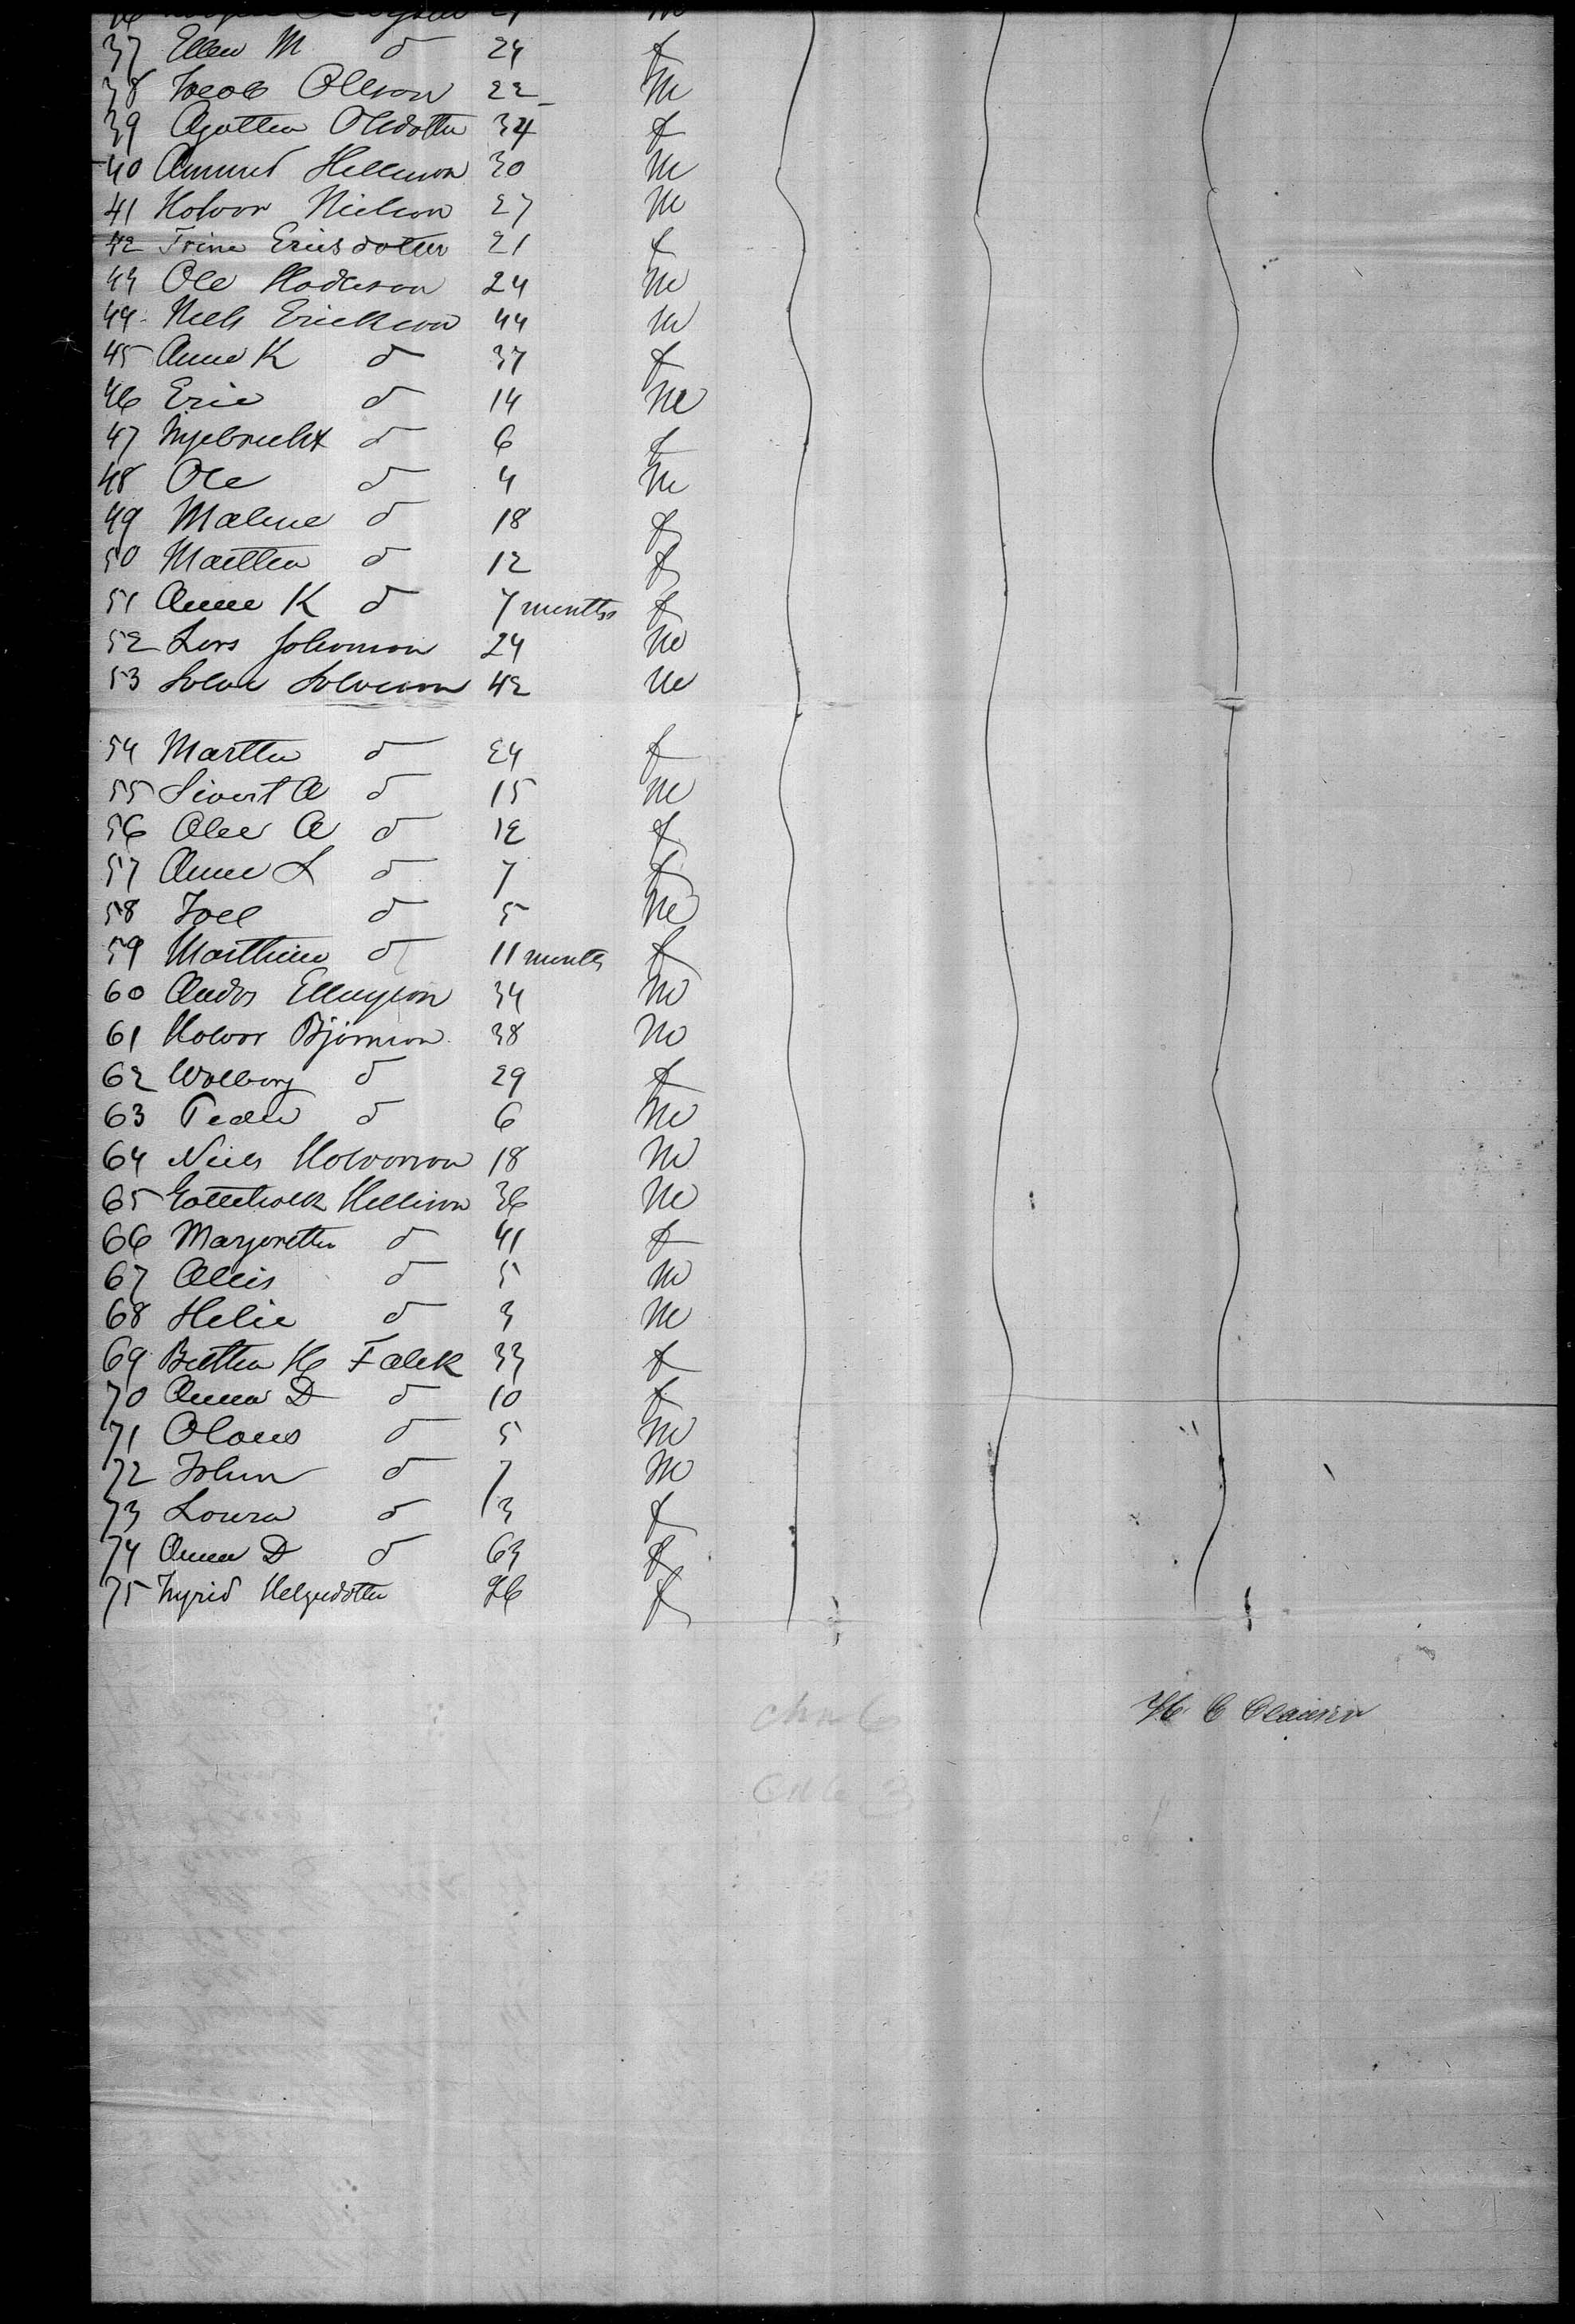 37 Ellen M d 24 f
38 Jacob Olleson 22 m
39 Agathea Olsdotter 34 f
40 Amund Hellesen 30 m
41 Holvor Nielson 27 m
42 Trine Ericsdotter 21 f
43 Ole 24 m
44 Niels Erickson 44 m
45 Anne K d 37 f
46 Eric d 14 m
47 d 6 f
48 Ole d 4 m
49 Malene d 18 f
50 Marthea d 12 f
51 Anne K d 7 months f
52 Lars Johnson 24 m
53 42 m
54 Marthe d 24 f
55 Sivert A d 15 m
56 A d 12 f
57 Anne L d 7 f
58 Joel d 5 m
59 Marthine d 11 months f
60 Anders 34 m
61 Holvor Bjornson 38 m
62 Wolborg d 29 f
63 Peder d 6 m
64 Niels Holvorson 18 m
65 36 m
66 Margrethe d 41 f
67 Ellis d 5 m
68 Helie d 3 m
69 Berthe H Falck 33 f
70 Anna D d 10 f
71 Olaus d 5 m
72 John d 7 m
73 Loura d 3 f
74 Anna D d 63 f
75 Ingrid Helgesdotter 26 f
H C Clausen